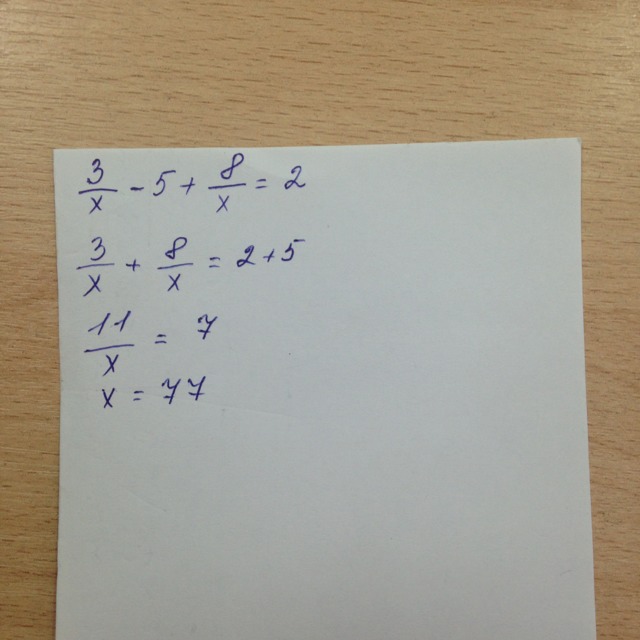 3/x - 5 + 8/x = 2
3/x + 8/x = 2 + 5
11/x = 7
x = 77